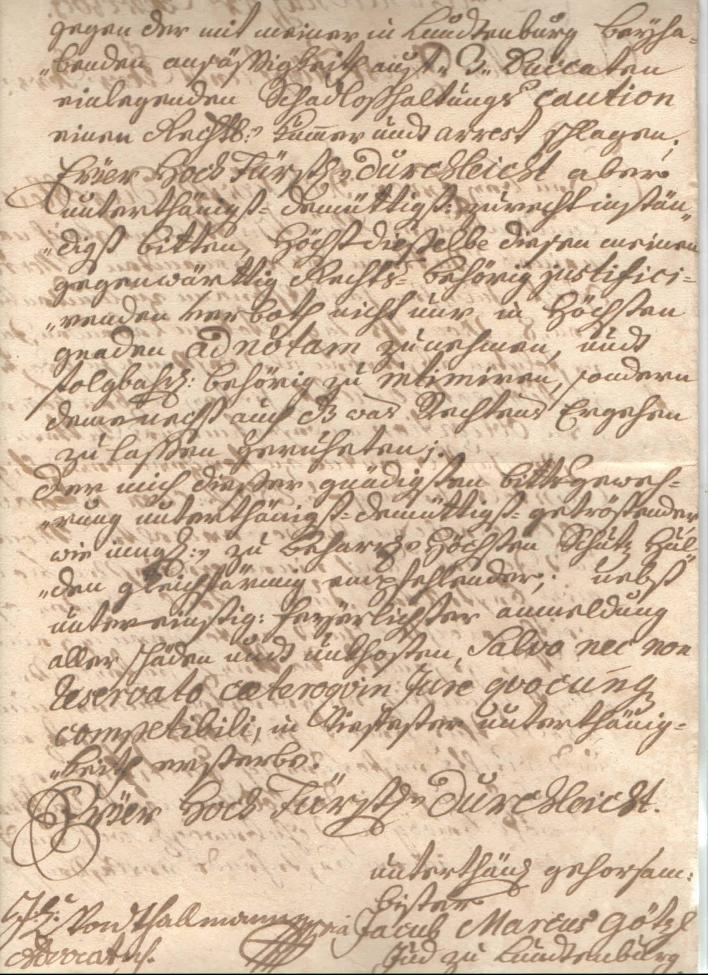 gegen der mit meiner in Lundtenburg beÿha-
„benden ansäßigkeith auf „3„ Duccaten
einlegenden Schadloßhaltungs caution
einen Rechts: kum̄er undt arrest schlagen.
Eüer Hoch Fürstl: Durchleicht aber
unterthänigst- demüttigst: zurecht instän„
„digst bitten, Höchst dieselbe diesen meinen
gegenwärttig Rechts- behörig justifici-
„renden verboth nicht nur in Höchsten
gnaden ad notam zu nehmen, undt
folgbahrl: behörig zu intimiren, sondern
demnechst auch waß Rechtens Ergehen
zu lassen geruheten;
Der mich dießer gnädigsten bitts geweh-
„rung unterthänigst- demüttigst- getröstender
wie zu beharrl: Höchsten Schutz Hul„
„den gleichförmig empfehlender; nebst
untereinstig: feyerlichster anmeldung
aller schäden undt unkosten, Salvo nec non
reservato caeteroqvin Jure qvocunq
competibili, in tiefester unterthänig-
„keith ersterbe.
Eüer Hoch Fürstl: Durchleicht.
unterthänigst gehorsam-
bister
Jacob Marcus Götzl
Jud zu Lundtenburg
Von Thallmann
Advocatus.